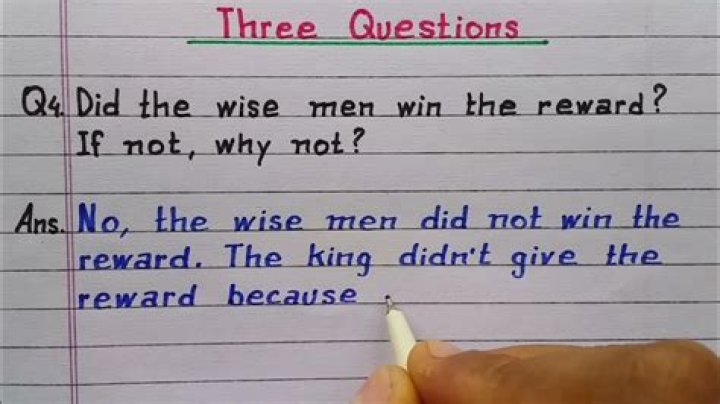 Three Questions
Q4. Did the wise men win the reward?
If not, why not?
Ans. No, the wise men did not win the
reward. The king didn't give the
reward because